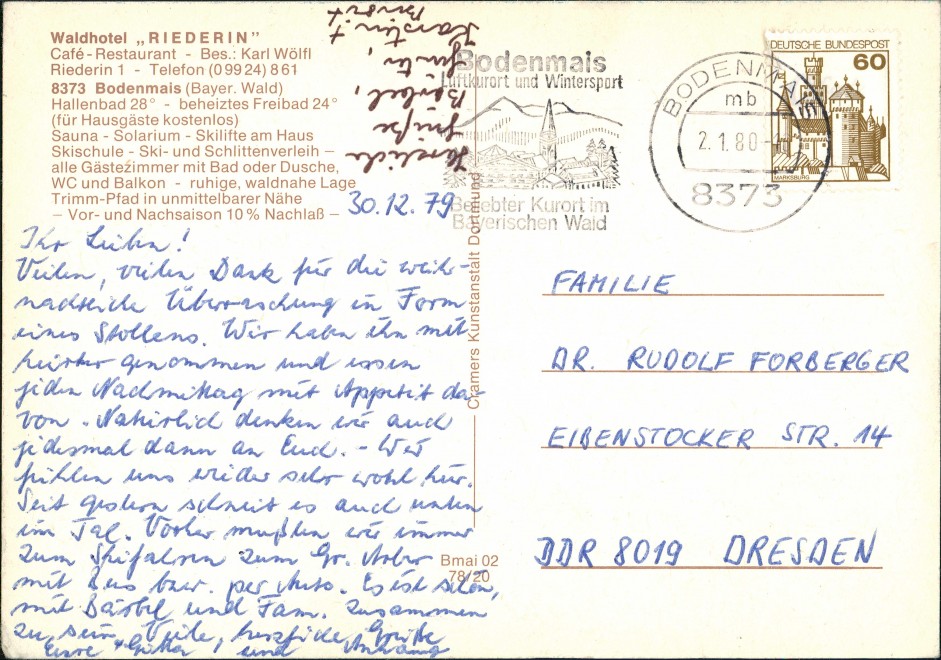 Waldhotel „RIEDERIN"
Café-Restaurant - Bes.: Karl Wölfl
Riederin 1 - Telefon (0 99 24) 8 61
8373 Bodenmais (Bayer. Wald)
Hallenbad 28° - beheiztes Freibad 24°
(für Hausgäste kostenlos)
Sauna - Solarium - Skilifte am Haus
Skischule - Ski- und Schlittenverleih –
alle Gästezimmer mit Bad oder Dusche,
WC und Balkon - ruhige, waldnahe Lage
Trimm-Pfad in unmittelbarer Nähe
– Vor- und Nachsaison 10 % Nachlaß –
30.12.79
Ihr Lieben!
Vielen, vielen Dank für die weih-
nachtliche Überraschung in Form
eines Stollens. Wir haben ihn mit
hierher genommen und essen
jeden Nachmittag mit Appetit da-
von. Natürlich denken wir auch
jedesmal dann an Euch. - Wir
fühlen uns wieder sehr wohl hier.
Seit gestern schneit es auch unten
im Tal. Vorher mußten wir immer
zum Skifahren zum Gr. Arber
mit Bus bzw. per Auto. Es ist schön,
mit Bärbel und Fam. zusammen
zu sein. Viele, herzliche Grüße
Eure und Anhang
Herzliche
Grüße
Bärbel,
Karsten +
Bodenmais
Luftkurort und Wintersport
Beliebter Kurort im
Bayerischen Wald
BODENMAIS
mb
2.1.80
8373
DEUTSCHE BUNDESPOST
60
MARKSBURG
Cramers Kunstanstalt Dortmund
Bmai 02
78/20
FAMILIE
DR. RUDOLF FORBERGER
EIBENSTOCKER STR. 14
DDR 8019 DRESDEN